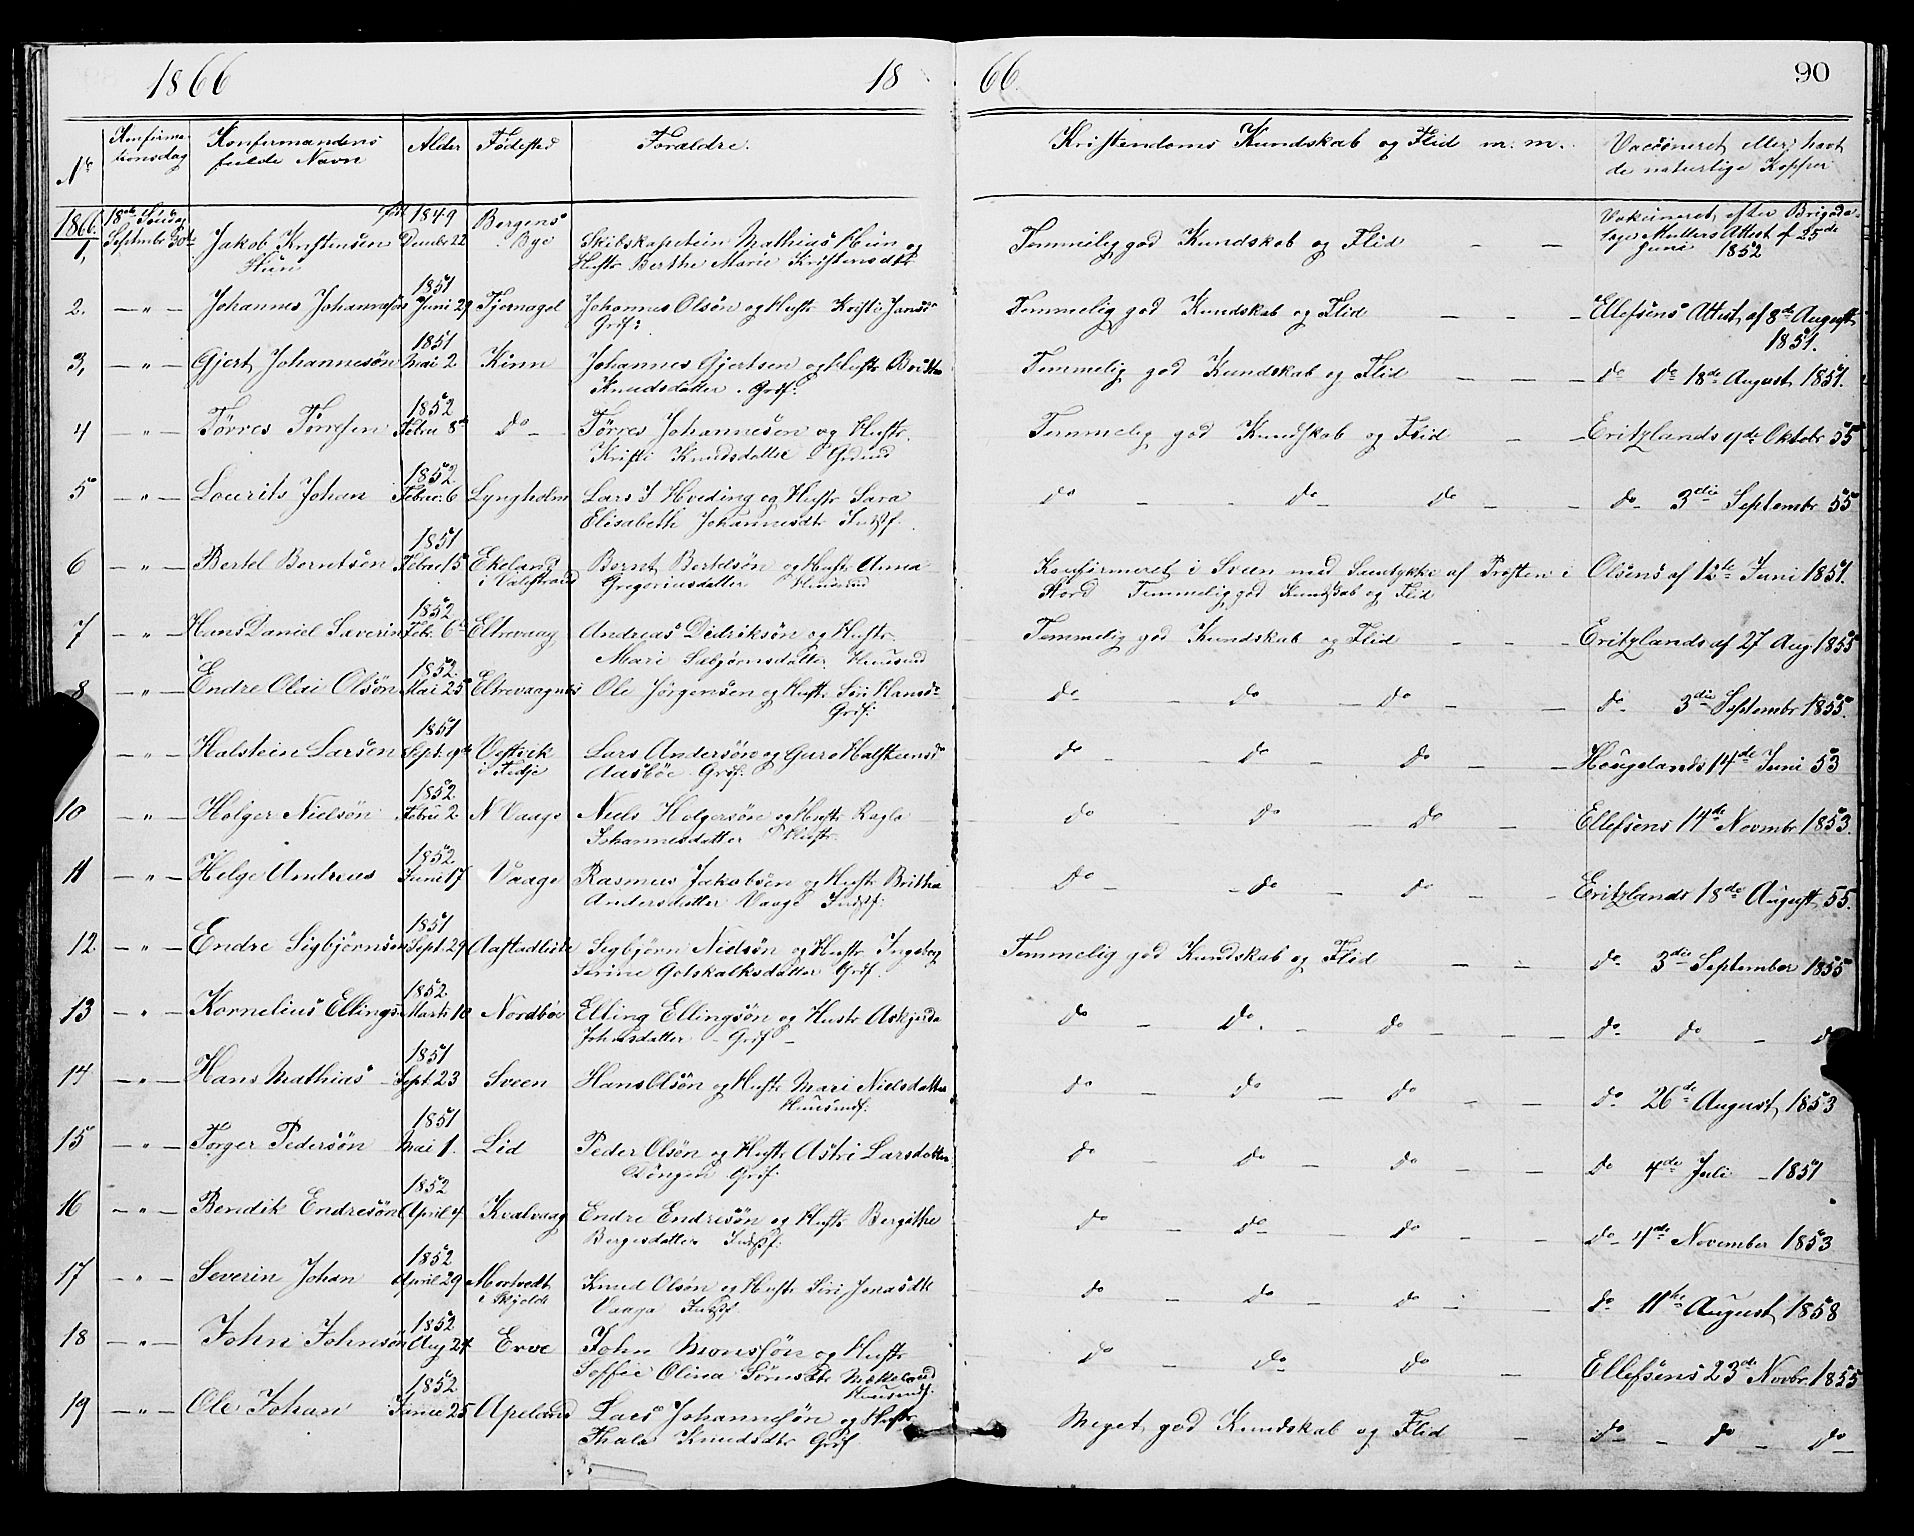 1866 1866. 90
No Konfirmationsdag Konfirmandens fulde Navn Alder Fødested Forældre. Kristendoms Kundskab og Flid m. m. Vaccineret eller havt de naturlige Kopper
1866. 18de Søndag Septembr 30te
1, Jakob Kristensen Hun 1849 Decmbr 22 Bergens Bye Skibskapetein Mathias Hun og Hustr Berthe Marie Kristensdtr Temmelig god Kundskab og Flid — — Vakcineret efter Brigadelæge Mullers Attest af 25de Juni 1852
2. — " — Johannes Johannesøn 1851 Juni 29 Tjernagel Johannes Olsøn og Hustr Kristi Jansd Grf: Temmelig god Kundskab og Flid — — — Ellefsens Attest af 8de August 1851.
3, — " — Gjert Johannesøn 1851 Mai 2 Kinn Johannes Gjertsen og Hustr Britha Knudsdatter. Grf: Temmelig god Kundskab og Flid — — — do do 18de August 1851.
4 — " — Tørres Tørresen 1852 Febru 8de do — Tørres Johannesøn og Hustr. Kristi Knudsdatter Temmelig god Kundskab og Flid — — Eritzlands 4de Oktobr 55
5 — " — Lourits Johan 1852 Februr. 6 Lyngholm Lars J Hveding og Hustr Sara Elisabeth Johannesdtr Indst. do — — do do — — do — 3die Septembr 55
6 — " — Bertel Berntsen 1851 Febru 15 Ekeland i Valestrand Bernt Bertelsøn og Hustr Anna Gregoriusdatter Huusmd Konfirmeret i Sveen med Samtykke af Prosten i Stord Temmelig god Kundskab og Flid Olsens af 12te Juni 1851.
7 — " — Hans Daniel Saverin 1852 Febr. 6te Eltrevaag Andreas Didriksøn og Hustr. Mari Sæbjørnsdatter. Huusmd Temmelig god Kundskab og Flid — — — Eritzlands af 27 Aug. 1855
8 — " — Endre Olai Olsøn 1852. Mai 25 Eltrevaagnes Ole Jørgensen og Hustr Siri Hansd Grf: do — do — do — — do — 3die Septembr 1855.
— " — Halstein Larsen 1851 Sept. 9de Vestvik i Fedje Lars Andersøn og Guro Halsteinsd Aasbøe. Grf: do — do — do — — Hougelands 14de Juni 53
10 — " — Holger Nielsøn 1852. Febru 2. N Vaage Niels Holgersøn og Hustr Ragla Johannesdatter do do — do — Ellefsens 14de Novmbr 1853.
11 — " — Helge Andreas 1852 Juni 17 Vaage Rasmus Jakobsøn og Hustr Britha Andersdatter Vaage Indst: do — — do — do — — Eritzlands 18de August 55.
12 — " — Endre Sigbjørnsen 1851 Sept. 29 Sigbjørn Nielsøn og Hustr Ingeborg Serine Gotskalksdatter Grf. Temmelig god Kundskab og Flid — — do — 3die September 1855
13 — " — Kornelius Ellings 1852. Marts 10 Nordbøe Elling Ellingsøn og Hustr Askjerda Johnsdatter — Grf — do — do. — do — — — do — do — do
14 — " — Hans Mathias — 1851 Sept. 23 Sveen Hans Olsøn og Hustr Mari Nielsdatter Huusmd: do — do — do — — do — 26de August 1853
15 — " — Torger Pedersøn 1851 Mai 1. Lid Peder Olsøn og Hustr Astri Larsdatter Grf: do — do — do — — do 4de Juli — 1851
16 — " — Bendik Endresøn 1852 April 4 Kvalvaag Endre Endresøn og Hustr Bergithe Bergesdatter Indst: do — do — do — — do — 4de November 1853
17 — " — Severin Johan 1852 April 29 Mortvedt i Skjolde Knud Olsøn og Hustr Siri Jonasdtr Vaaga Indst do — do — do — — do — 11te August 1858
18 — " — John Johnsøn 1852 Aug 24 Erve John Monssøn og Hustr Soffie Olina Huusmd: do — do — do — Ellefsens 23de Novbr. 1855
19 — " — Ole Johan 1852. Junie 25 Apeland Lars Johannesøn og Hustr Thala Knudsdtr Grf Meget god Kundskab og Flid — do — — do — do —